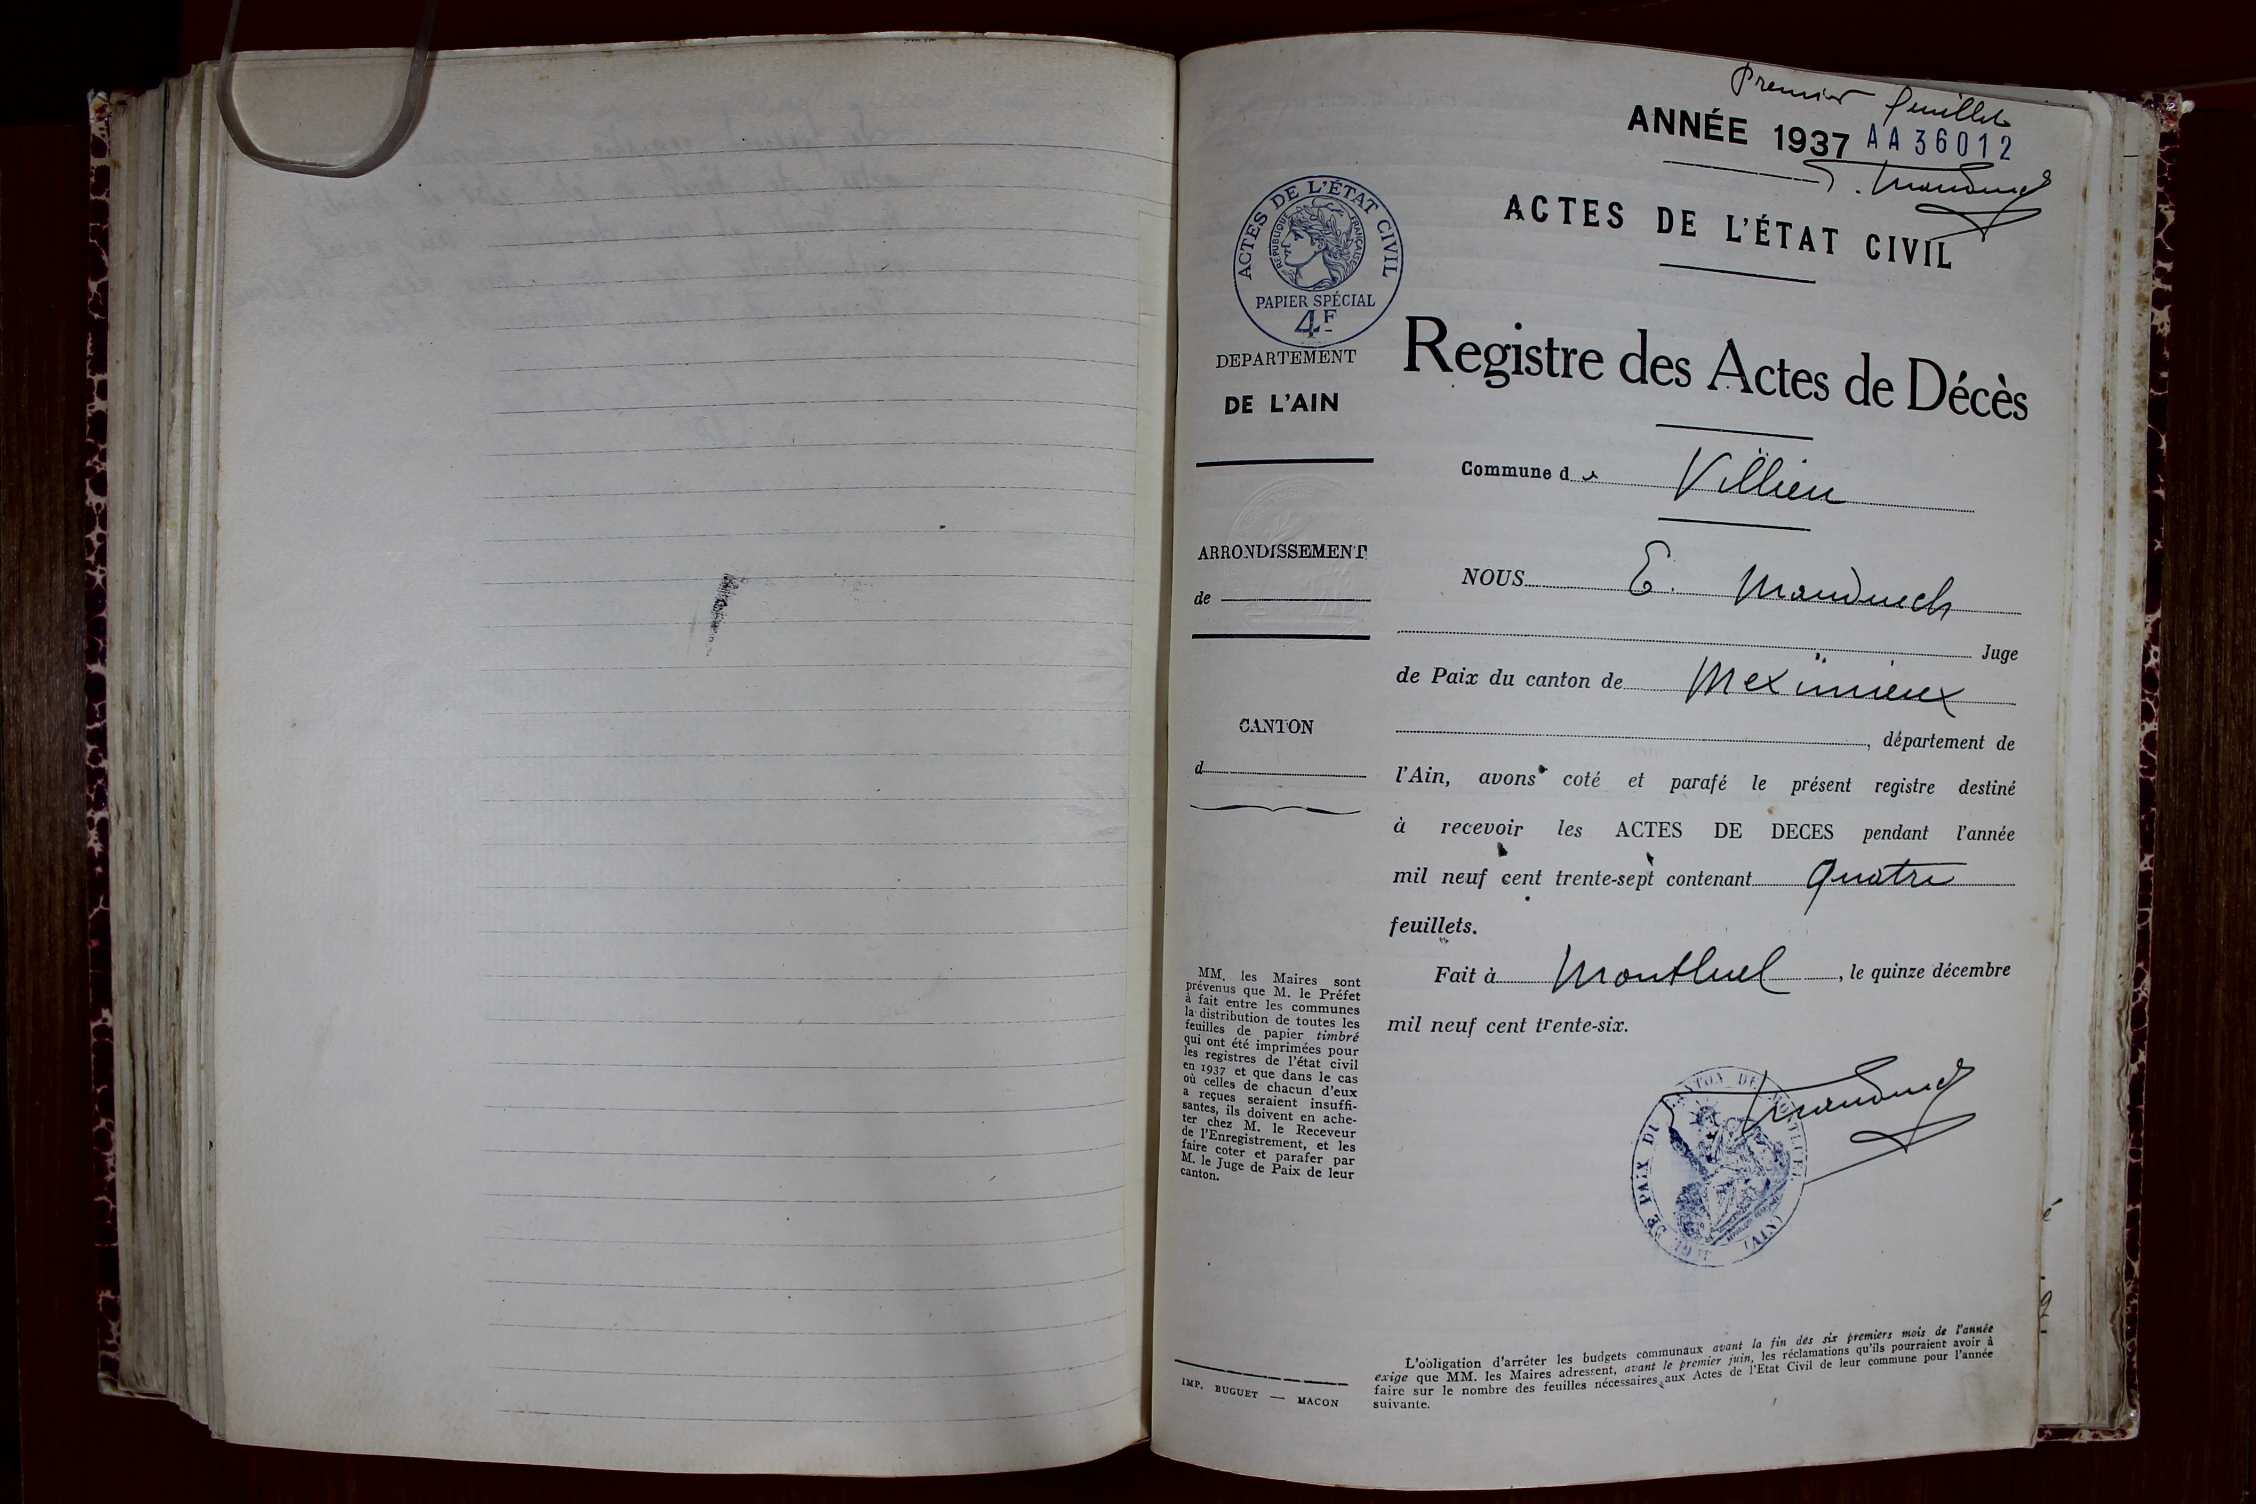 Premier feuillet
ANNÉE 1937 AA36012
ACTES DE L'ÉTAT CIVIL
RÉPUBLIQUE FRANÇAISE
PAPIER SPÉCIAL
4F
ACTES DE L'ÉTAT CIVIL
DEPARTEMENT
DE L'AIN
Registre des Actes de Décès
Commune de Villieu
ARRONDISSEMENT
de
CANTON
d
NOUS E.
Juge
de Paix du canton de Meximieux
, département de
l'Ain, avons coté et parafé le présent registre destiné
à recevoir les ACTES DE DECES pendant l'année
mil neuf cent trente-sept contenant quatre
feuillets.
Fait à Montluel, le quinze décembre
mil neuf cent trente-six.
MM. les Maires sont
prévenus que M. le Préfet
à fait entre les communes
la distribution de toutes les
feuilles de papier timbré
qui ont été imprimées pour
les registres de l'état civil
en 1937 et que dans le cas
où celles de chacun d'eux
a reçues seraient insuffi-
santes, ils doivent en ache-
ter chez M. le Receveur
de l'Enregistrement, et les
faire coter et parafer par
M. le Juge de Paix de leur
canton.
PAIX DU CANTON DE MONTLUEL (AIN)
L'obligation d'arrêter les budgets communaux avant la fin des six premiers mois de l'année
exige que MM. les Maires adressent, avant le premier juin, les réclamations qu'ils pourraient avoir à
faire sur le nombre des feuilles nécessaires aux Actes de l'Etat Civil de leur commune pour l'année
suivante.
IMP. BUGUET — MACON